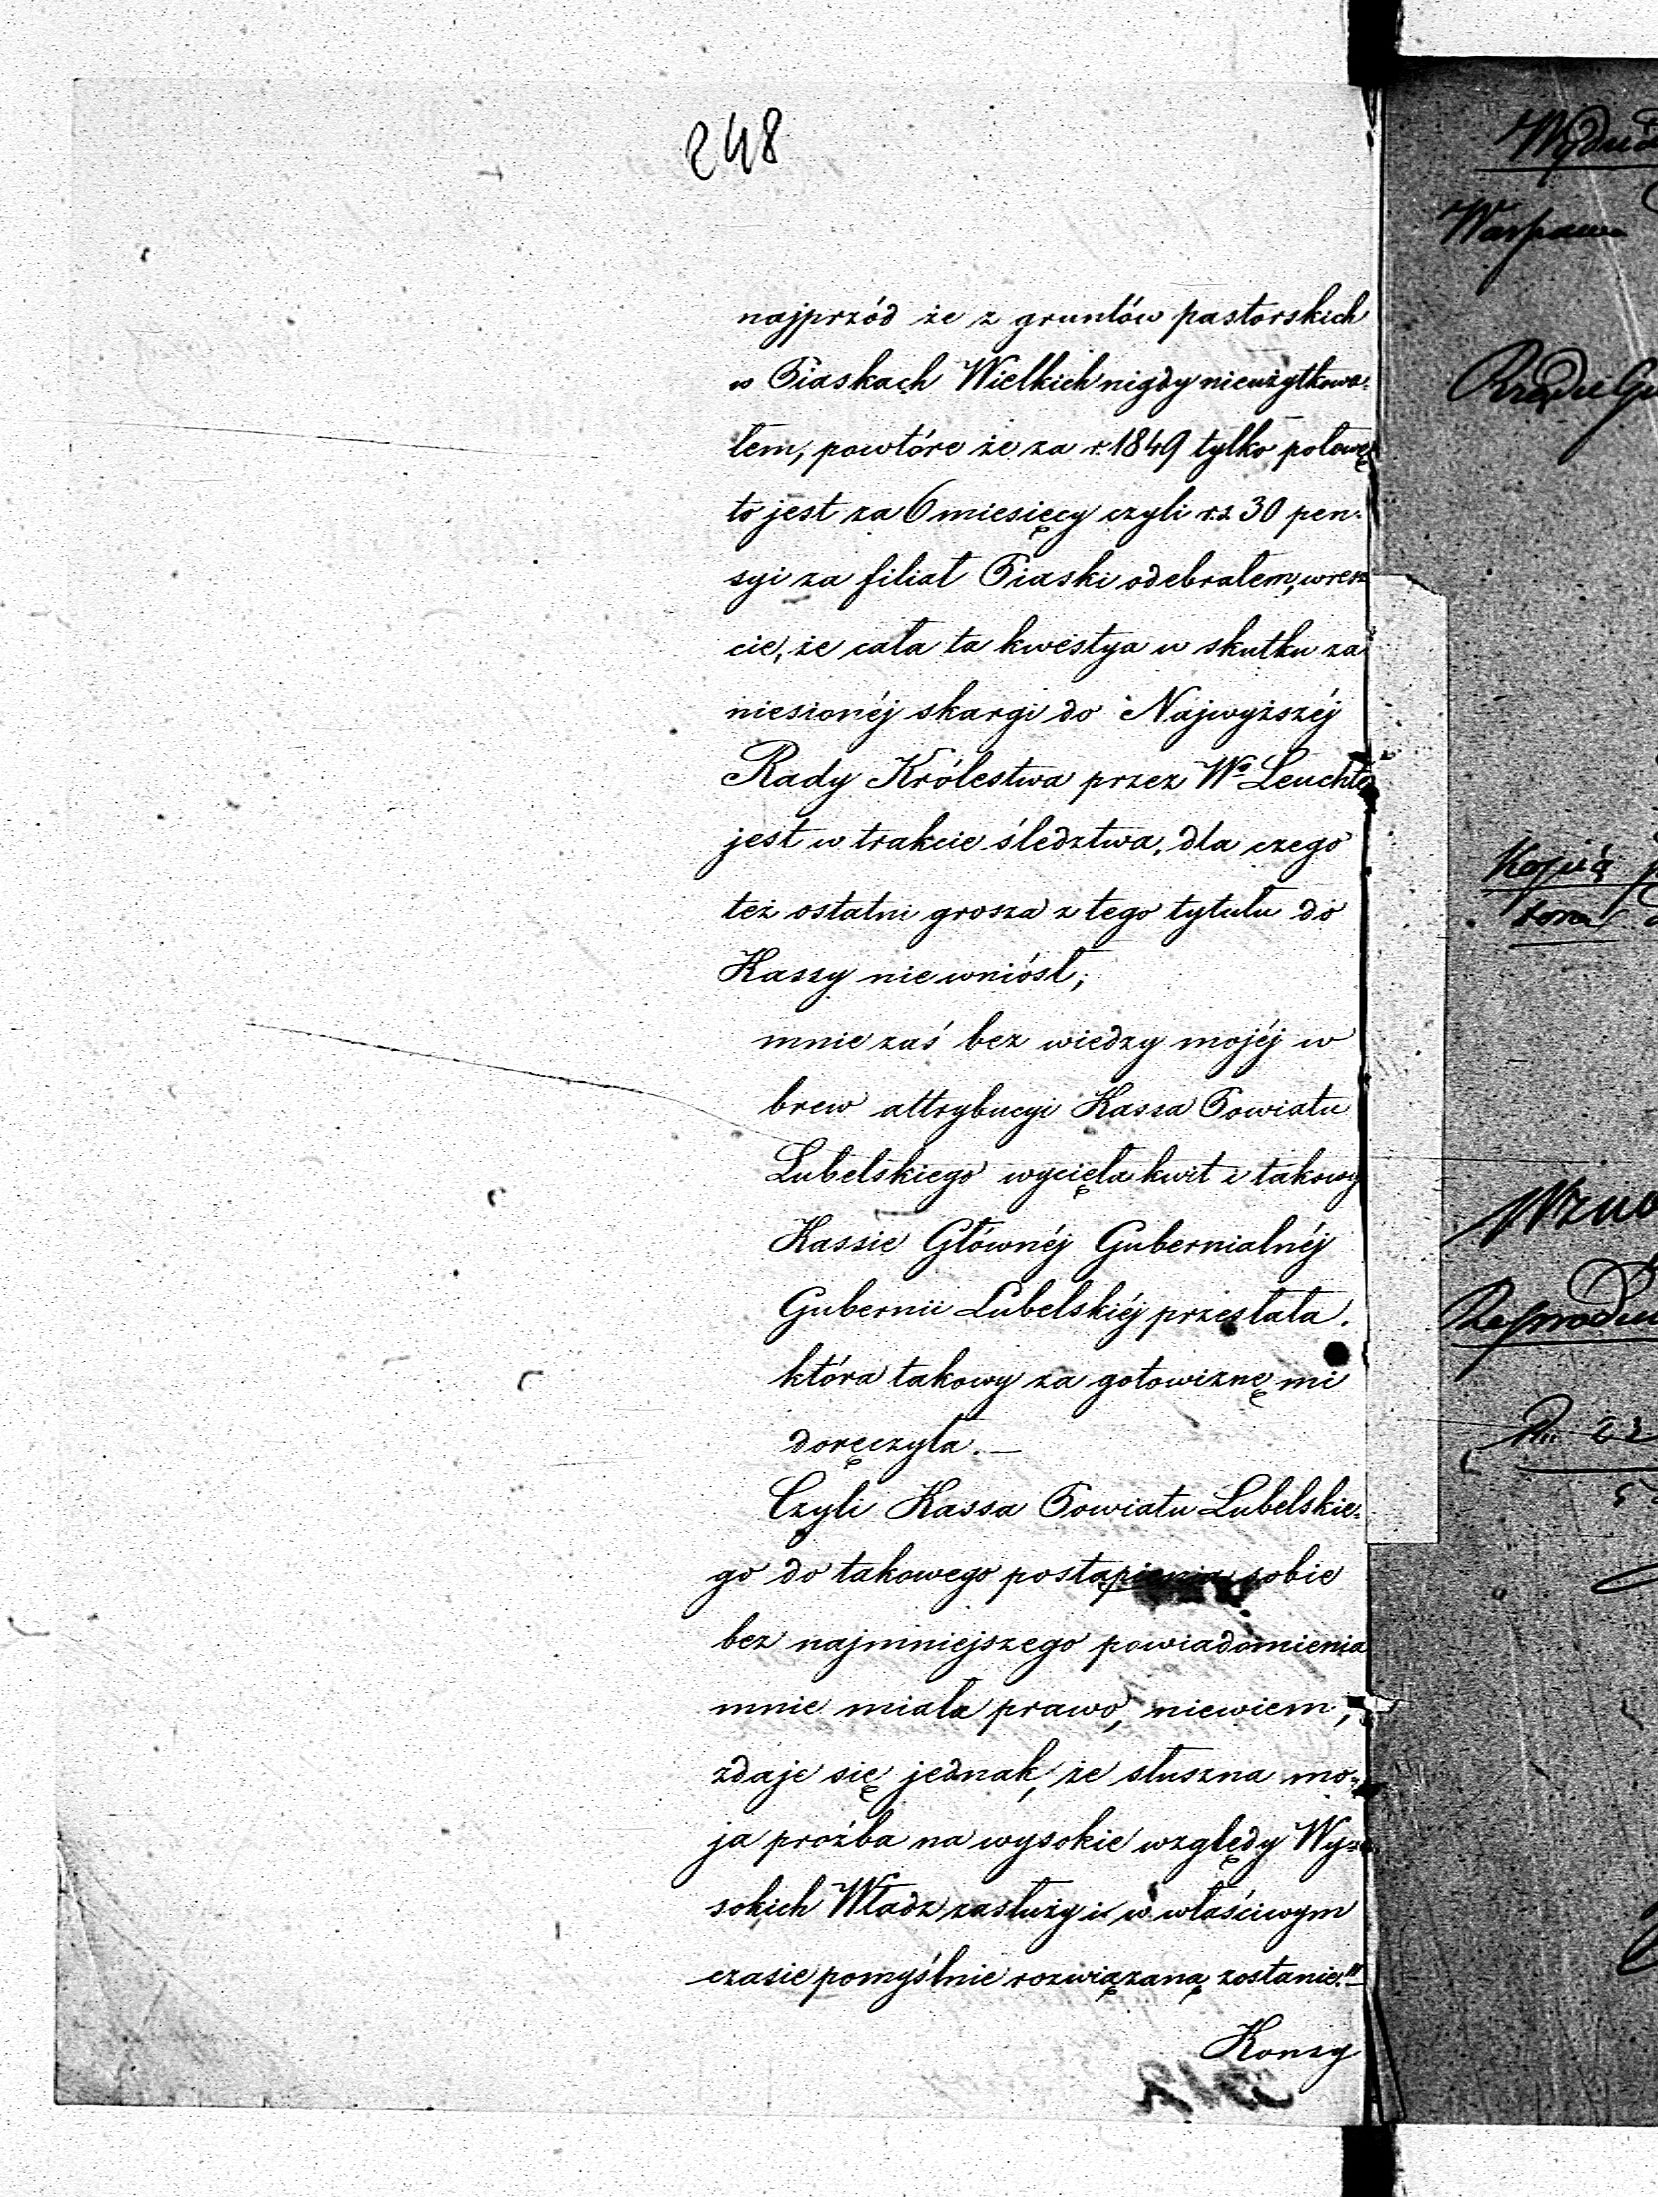 248
najprzód że z gruntów pastorskich
w Piaskach Wielkich nigdy nieużytkowa-
łem, powtóre że za r. 1849 tylko połowę
to jest za 6 miesięcy czyli rs 30 pen-
syi za filiał Piaski odebrałem, wresz
cie, że cała ta kwestya w skutku za
niesionéj skargi do Najwyższéj
Rady Królestwa przez Wo Leuchte
jest w trakcie śledztwa, dla czego
też ostatni grosza z tego tytułu do
Kassy nie wniósł;
mnie zaś bez wiedzy mojéj w
brew attrybucyi Kassa Powiatu
Lubelskiego wycięła kwit i takowy
Kassie Głównéj Gubernialnéj
Gubernii Lubelskiéj przesłała.
która takowy za gotowiznę mi
doręczyła. —
Czyli Kassa Powiatu Lubelskie-
go do takowego postąpienia sobie
bez najmniejszego powiadomienia
mnie miała prawo, niewiem,
zdaje się jednak, że słuszna mo-
ja proźba na wysokie względy Wy-
sokich Władz zasłuży i w właściwym
czasie pomyślnie rozwiązaną zostanie!!!
Konsy